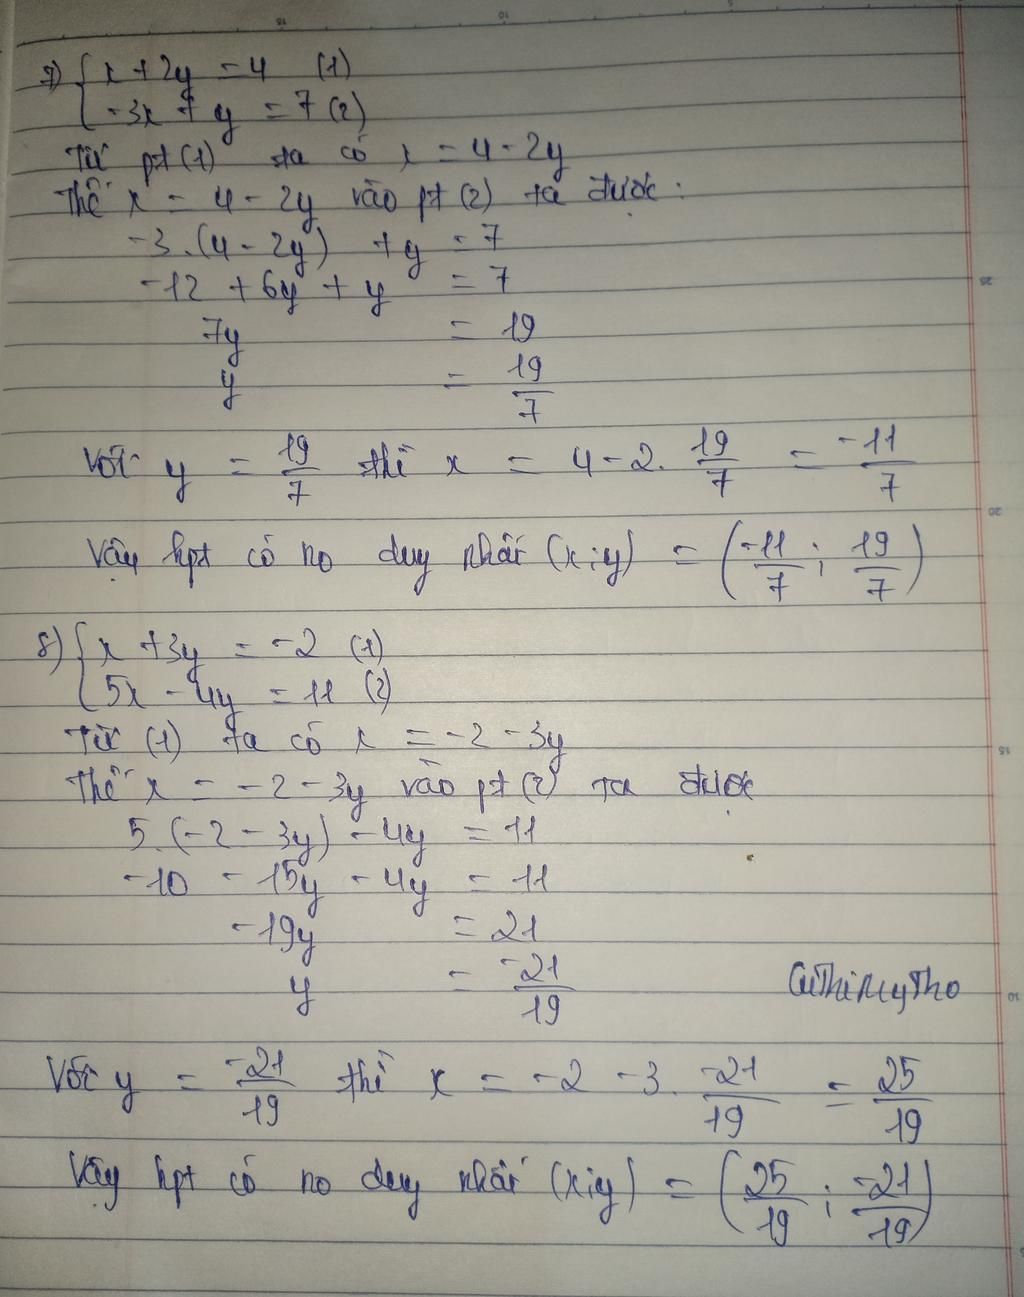 7) { x + 2y = 4 (1)
-3x + y = 7 (2)
Từ pt (1) ta có x = 4 - 2y
Thế x = 4 - 2y vào pt (2) ta được:
-3.(4 - 2y) + y = 7
-12 + 6y + y = 7
7y = 19
y = 19/7
Với y = 19/7 thì x = 4 - 2. 19/7 = -11/7
Vậy hpt có no duy nhất (x;y) = (-11/7; 19/7)
8) { x + 3y = -2 (1)
5x - 4y = 11 (2)
Từ (1) ta có x = -2 - 3y
Thế x = -2 - 3y vào pt (2) ta được
5.(-2 - 3y) - 4y = 11
-10 - 15y - 4y = 11
-19y = 21
y = -21/19
Với y = -21/19 thì x = -2 - 3. -21/19 = 25/19
Vậy hpt có no duy nhất (x;y) = (25/19; -21/19)
15
10
5
25
20
15
10